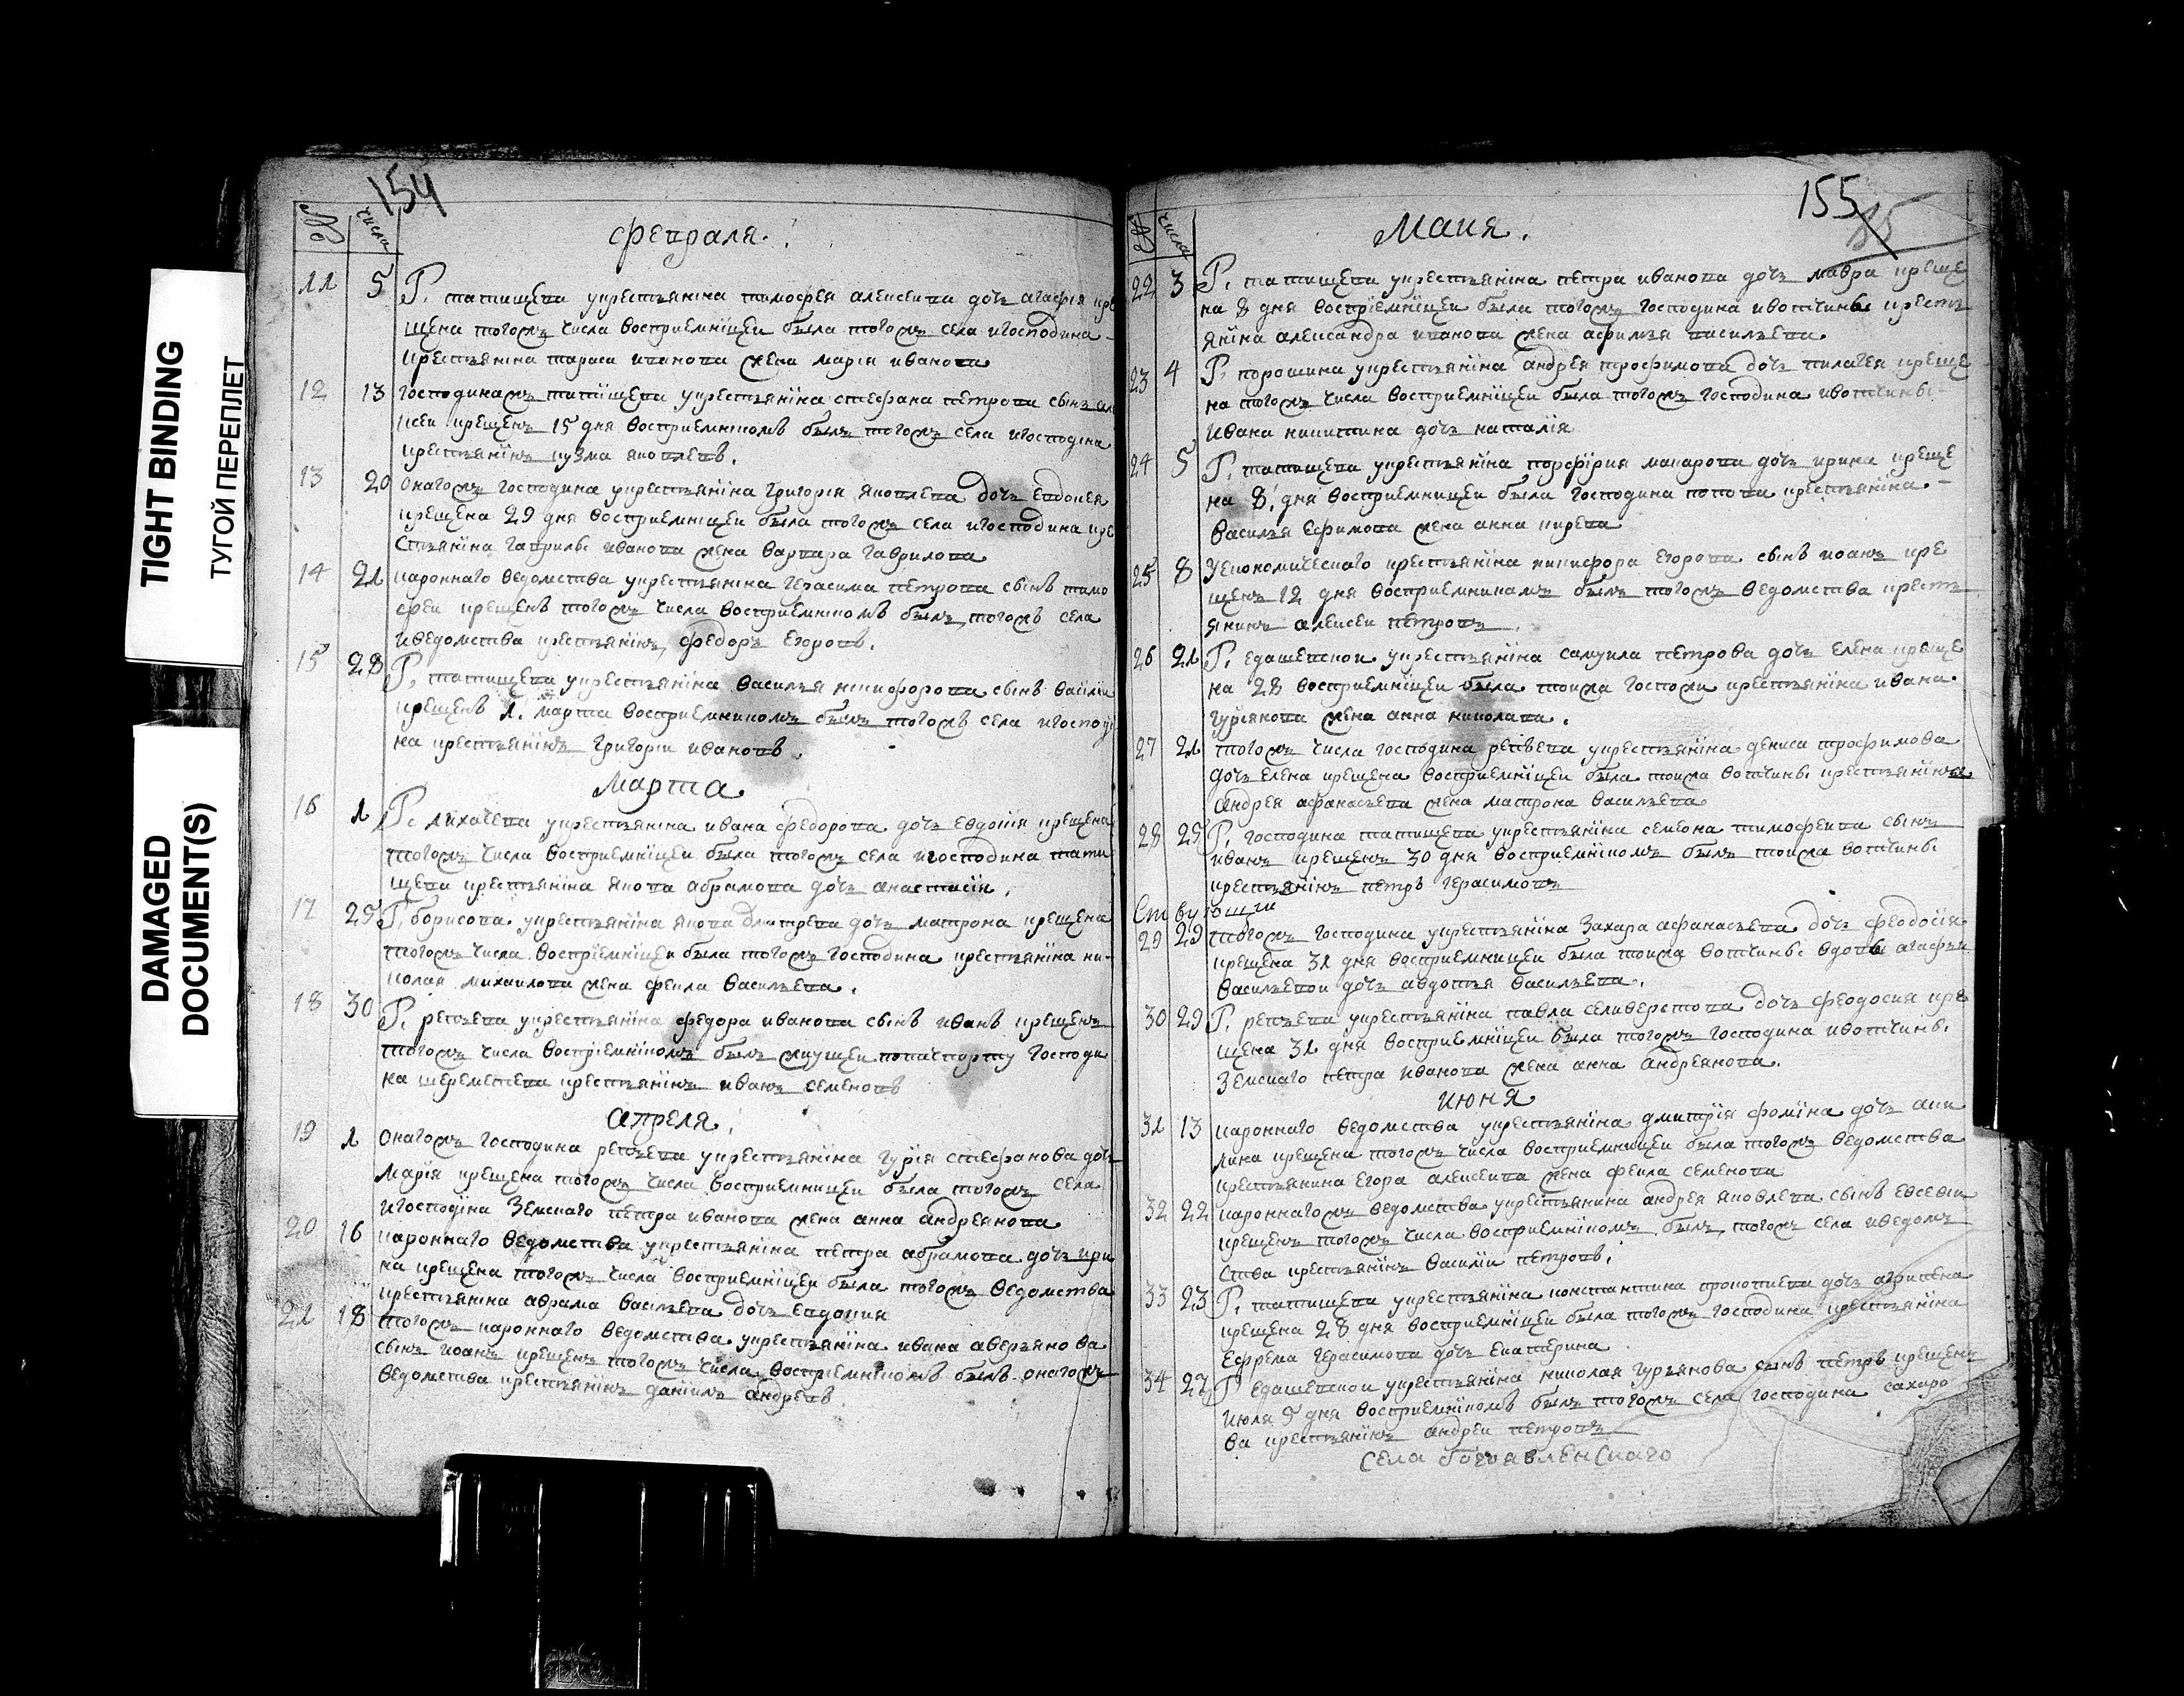 TIGHT BINDING
ТУГОЙ ПЕРЕПЛЕТ
DAMAGED
DOCUMENT(S)
154
№ числа
февраля.
11 5 Г. татищева укрестьянина тимофея алексеева дочь агафія кре
щена тогожъ числа восприемніцеи была тогожъ села игосподина
крестьянина тараса иванова жена марія иванова
12 13 господинажъ татищева укрестьяніна стефана петрова сынъ але
ксеи крещенъ 15 дня восприемнікомъ былъ тогожъ села игосподина
крестьянінъ кузма яковлевъ.
13 20 онагожъ господина укрестьяніна григорія яковлева дочь евдокея
крещена 29 дня восприемніцеи была тогожъ села игосподина кре
стьяніна гаврилы иванова жена варвара гаврилова
14 21 кароннаго ведомства укрестьяніна герасима петрова сынъ тимо
феи крещенъ тогожъ числа восприемнікомъ былъ тогожъ села
иведомства крестьянінъ федоръ егоровъ.
15 28 Г. татищева укрестьяніна василья никифорова сынъ василіи
крещенъ 1. марта восприемникомъ былъ тогожъ села игосподи
на крестьянінъ григоріи ивановъ.
марта
16 1 Г. лихачева укрестьяніна ивана федорова дочь евдокія крещена
тогожъ числа восприемніцеи была тогожъ села игосподина тати
щева крестьяніна якова абрамова дочь анастасія.
17 25 Г. борисова укрестьяніна якова дмитрева дочь матрона крещена
тогожъ числа восприемніцеи была тогожъ господина крестьяніна ни-
колая михаилова жена фекла васильева.
18 30 Г. репьева укрестьяніна федора иванова сынъ иванъ крещенъ
тогожъ числа восприемнікомъ былъ жиущеи попачпорту господи
на шереметева крестьянінъ иванъ семеновъ
апреля.
19 1 онагожъ господина репьева укрестьяніна гурія стефанова дочь
марія крещена тогожъ числа восприемницеи была тогожъ села
игосподіна земскаго петра иванова жена анна андреянова
20 16 кароннаго ведомства укрестьяніна петра абрамова дочь ири
на крещена тогожъ числа восприемніцеи была тогожъ ведомства
крестьяніна аврама васильева дочь евдокия
21 18 тогожъ кароннаго ведомства укрестьяніна ивана аверьянова
сынъ иоанъ крещенъ тогожъ числа восприемнікомъ былъ оногожъ
ведомства крестьянінъ даніилъ андреевъ
155
№ числа
маия.
22 3 Г. татищева укрестьяніна петра иванова дочь мавра креще
на 8 дня восприемніцеи была тогожъ господина ивотчины крестъ
яніна александра иванова жена афимья васильева
23 4 Г. порошина укрестьяніна андрея трофимова дочь пилагея креще
на тогожъ числа восприемніцеи была тогожъ господина ивотчины
ивана никитина дочь наталія
24 5 Г. татищева укрестьяніна порфірия макарова дочь ирина креще
на 8. дня восприемницеи была господина попова крестьяніна
василья ефимова жена анна кирева
25 8 уекономическаго крестьяніна никифора егорова сынъ иоанъ кре
щенъ 12 дня восприемникомъ былъ тогожъ ведомства крестъ
янинъ алексеи петровъ.
26 21 Г. едашевскои укрестьяніна самуила петрова дочь елена креще
на 28 восприемніцеи была тоижа госпожи крестьяніна ивана
гурьянова жена анна николава.
27 21 тогожъ числа господина репьева укрестьяніна дениса трофимова
дочь елена крещена восприемніцеи была тоижа вотчины крестьяніна
андрея афанасьева жена матрона васильева
28 25 Г. господина татищева укрестьяніна семеона тимофеива сынъ
иванъ крещенъ 30 дня восприемнікомъ былъ тоижа вотчины
крестьянінъ петръ герасимовъ
29 29 тогожъ господина укрестьяніна захара афанасьева дочь феодосія
крещена 31 дня восприемницеи была тоижа вотчины вдовы агафьи
васильевои дочь авдотья васильева.
30 29 Г. репьева укрестьяніна павла селиверстова дочь феодосия кре
щена 31 дня восприемніцеи была тогожъ господина ивотчины
земскаго петра иванова жена анна андреянова.
июня
31 13 кароннаго ведомства укрестьяніна дмитрія фоміна дочь аки
лина крещена тогожъ числа восприемницеи была тогожъ ведомства
крестьянина егора алексеива жена фекла семенова
32 22 кароннагожъ ведомства укрестьянина андрея яковлева сынъ евсевіи
крещенъ тогожъ числа восприемнікомъ былъ тогожъ села иведомъ
ства крестьянінъ василіи петровъ.
33 23 Г. татищева укрестьяніна константина прокопиева дочь агрипена
крещена 28 дня восприемніцеи была тогожъ господина крестьяніна
ефрема герасимова дочь екатерина
34 27 Г едашевскои укрестьяніна николая гурьянова сынъ петръ крещенъ
июля 5 дня восприемнікомъ былъ тогожъ села господина сахаро
ва крестьянінъ андреи петровъ
села богоявленскаго